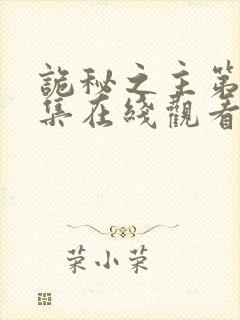 詭秘之主第
集在綫觀看
荣小荣